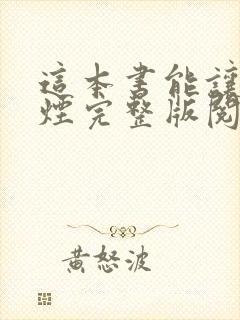 這本書能讓
煙完整版閱
黃怒波